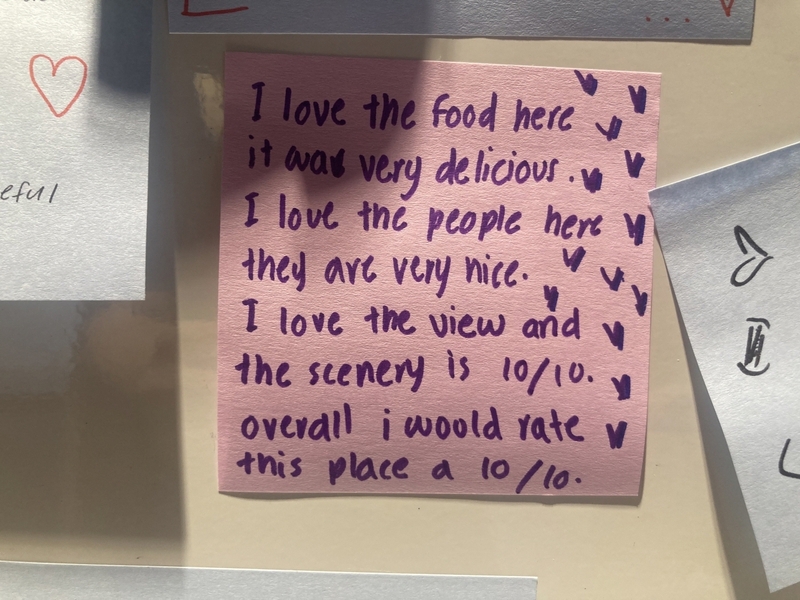 I love the food here
it was very delicious.
I love the people here
they are very nice.
I love the view and
the scenery is 10/10.
overall i would rate
this place a 10/10.
eful